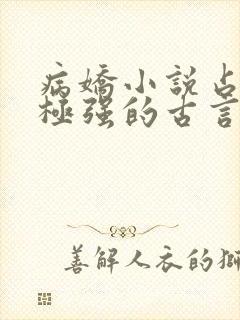 病嬌小説占
極强的古言
善解人衣的獅